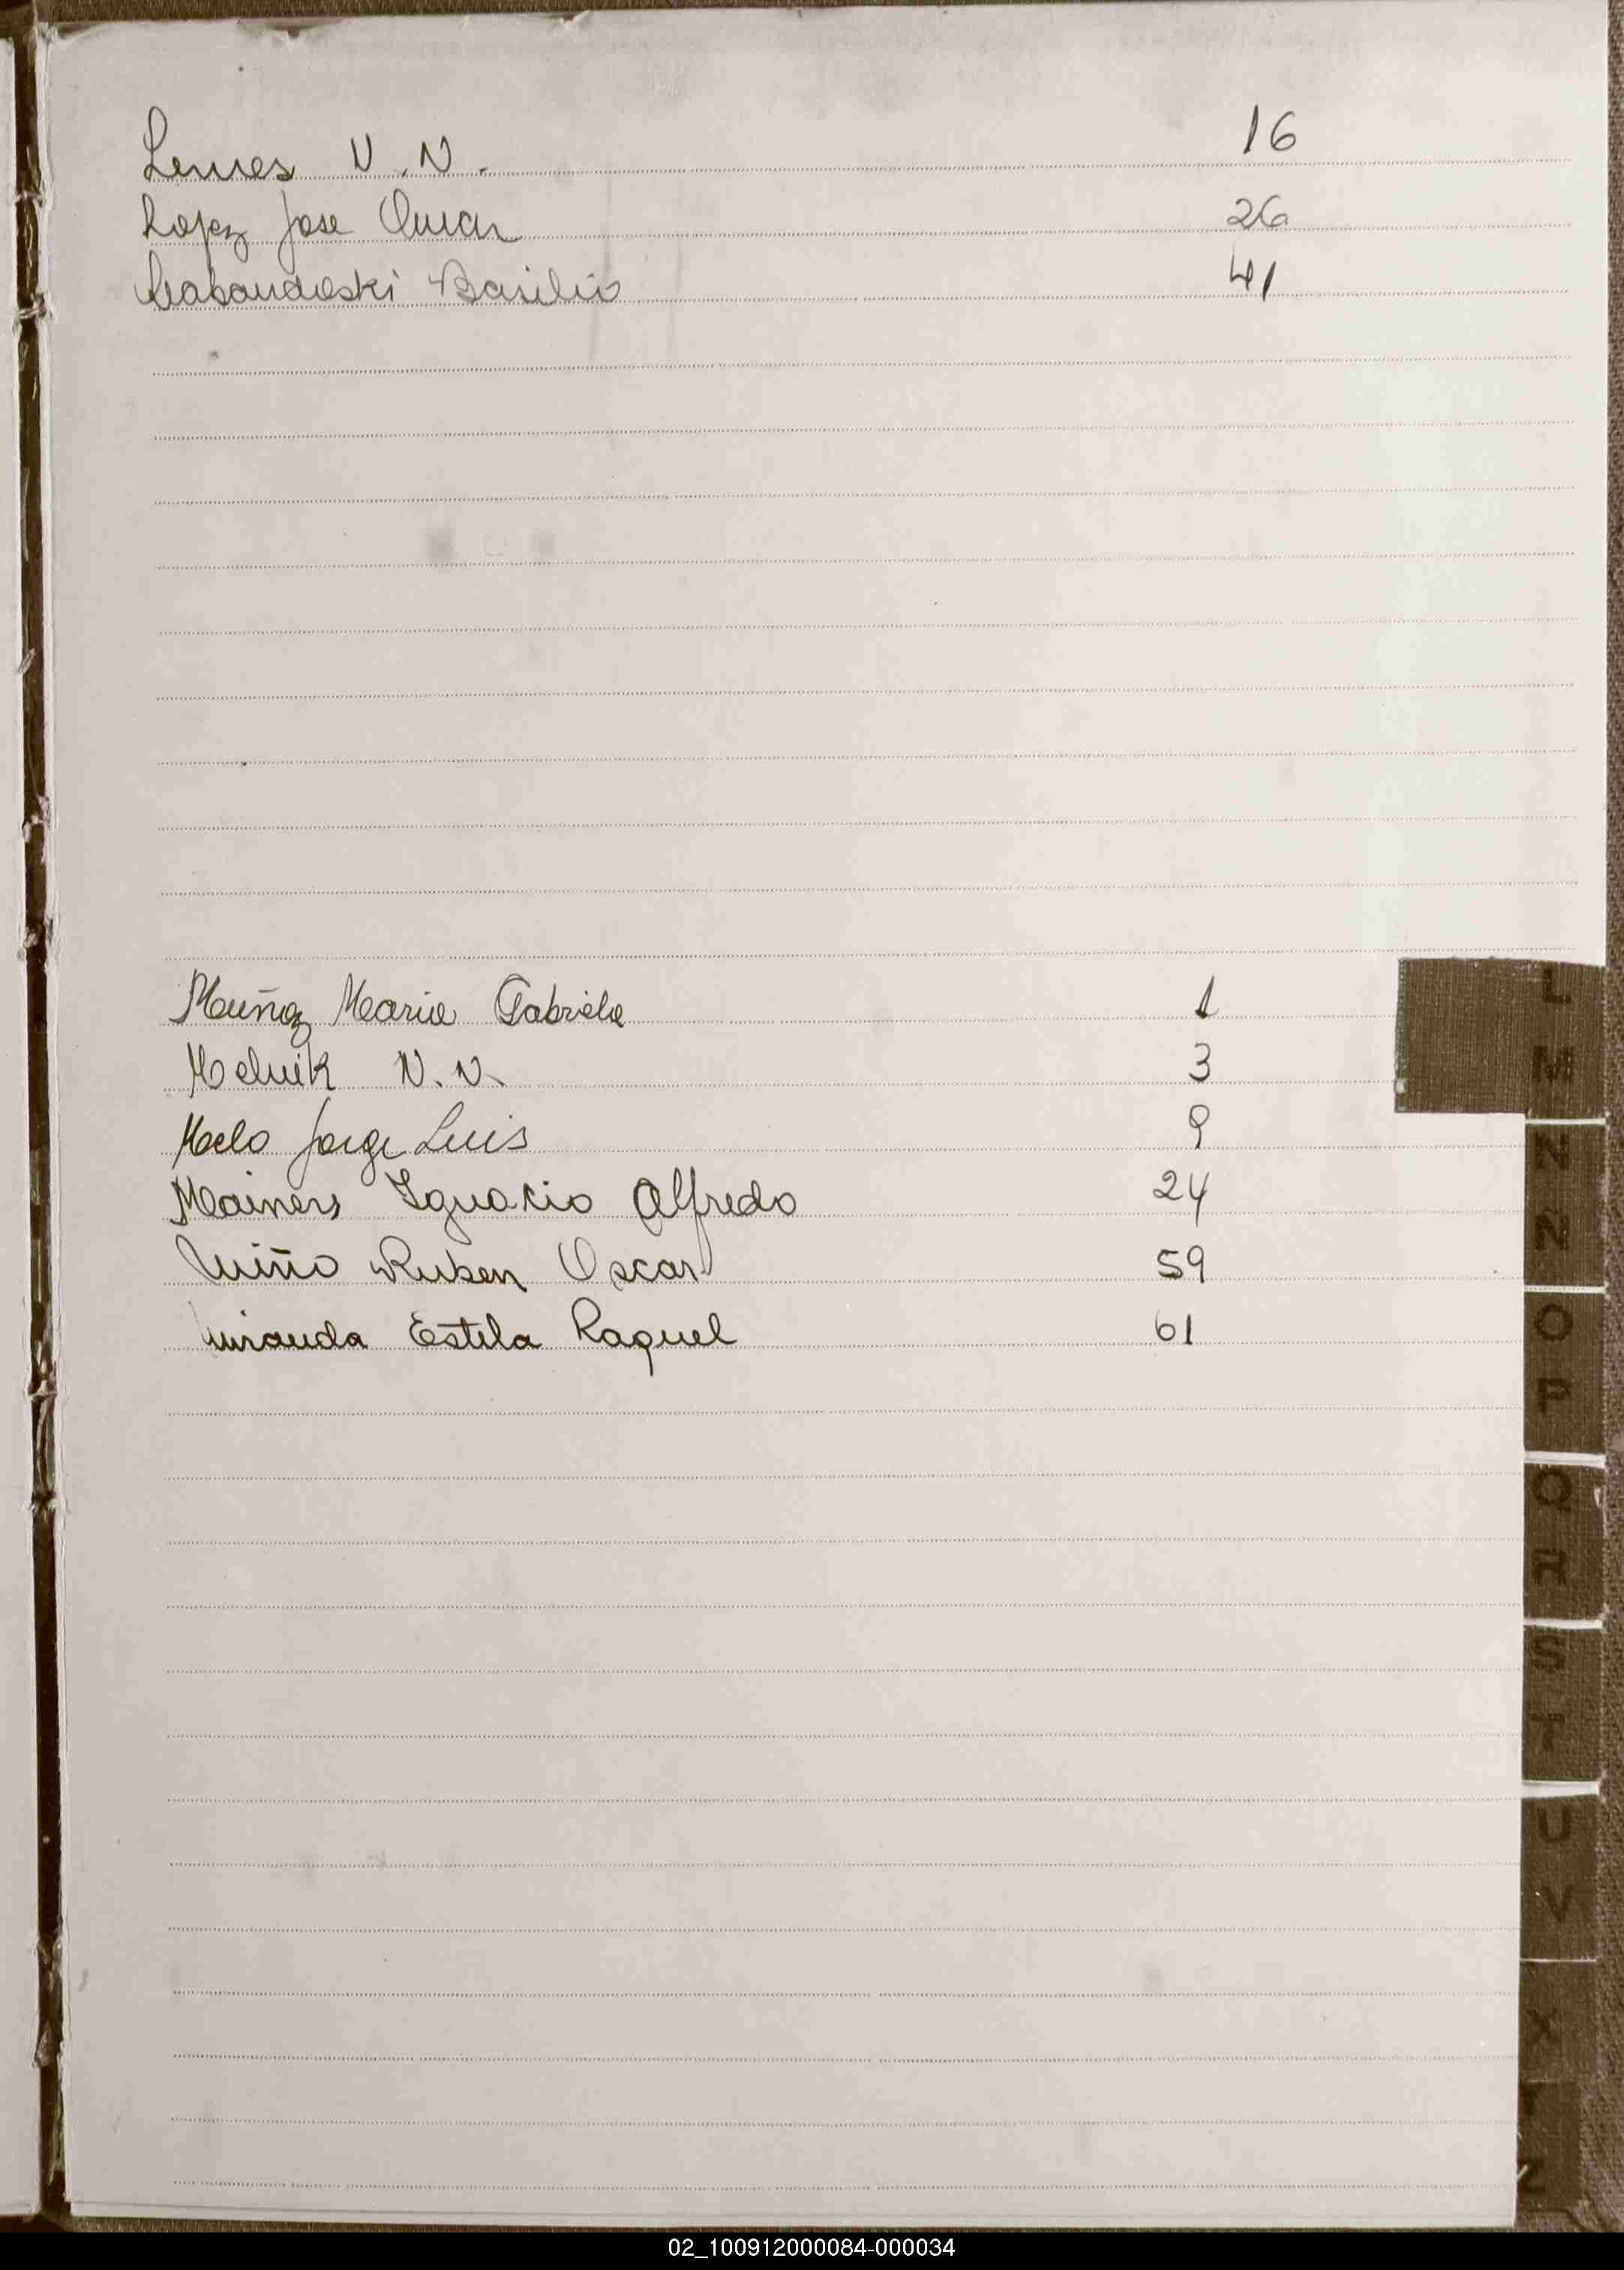 Lemes N.N. 16
Lopez Jose Omar 26
Basilio 41
Muñoz Maria Gabriela 1
Melnik N.N. 3
Melo Jorge Luis 9
Mainers Ignacio Alfredo 24
Miño Ruben Oscar 59
Miranda Estela Raquel 61
L
M
N
Ñ
O
P
Q
R
S
T
U
V
X
Y
Z
02_100912000084-000034